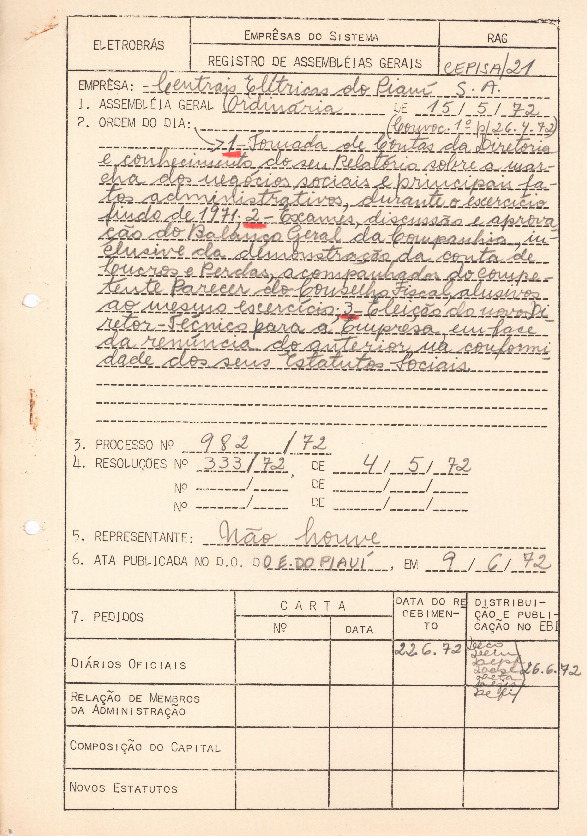 ELETROBRÁS
EMPRÊSAS DO SISTEMA
REGISTRO DE ASSEMBLÉIAS GERAIS
RAG
CEPISA/21
EMPRÊSA: Centrais Elétricas do Piauí S.A.
1. ASSEMBLÉIA GERAL Ordinária DE 15/5/72
2. ORDEM DO DIA: (Convoc. 1º p/26.4.72)
1 - Tomada de Contas da Diretoria
e conhecimento do seu Relatório sobre a mar-
cha dos negócios sociais e principais fa-
tos administrativos, durante o exercício
findo de 1971. 2 - Exames, discussão e aprova
ção do Balanço Geral da Companhia, in-
clusive da demonstração da conta de
Lucros e Perdas, acompanhadas do compe-
tente Parecer do Conselho Fiscal alusivos
ao mesmo exercício. 3 - Eleição do novo Di
retor-Técnico para a Empresa, em face
da renúncia do anterior, na conformi
dade dos seus Estatutos Sociais
3. PROCESSO Nº 982 /72
4. RESOLUÇÕES Nº 333/72, DE 4/5/72
Nº / DE / /
Nº / DE / /
5. REPRESENTANTE: Não houve
6. ATA PUBLICADA NO D.O. DO E. DO PIAUÍ, EM 9/6/72
7. PEDIDOS
CARTA
Nº
DATA
DATA DO RE
CEBIMEN-
TO
DISTRIBUI-
ÇÃO E PUBLI-
CAÇÃO NO EBI
DIÁRIOS OFICIAIS
22.6.72
26.6.72
RELAÇÃO DE MEMBROS
DA ADMINISTRAÇÃO
COMPOSIÇÃO DO CAPITAL
NOVOS ESTATUTOS